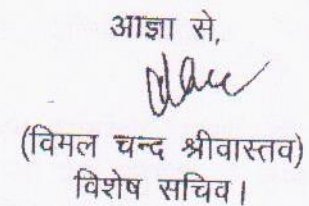 आज्ञा से,
(विमल चन्द श्रीवास्तव)
विशेष सचिव।